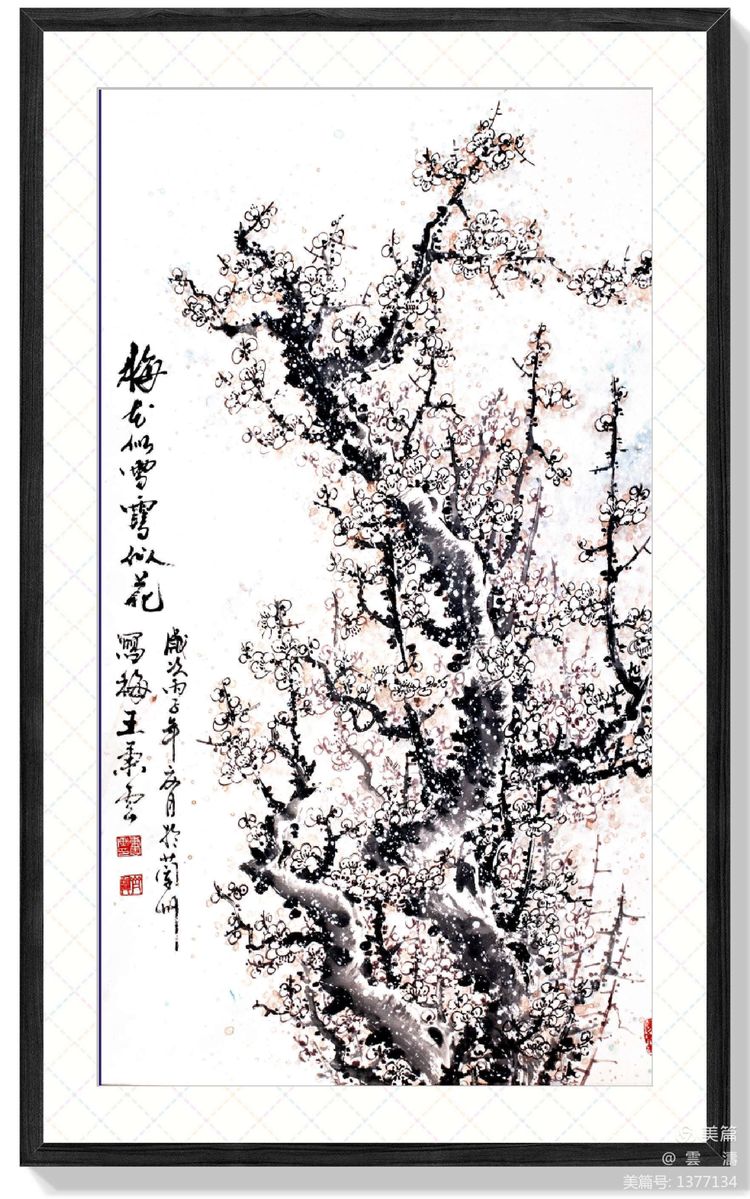 梅花似雪雪似花
寫梅王
歲次丙子年 月於蘭州
美篇
@ 雲 濤
美篇号: 1377134